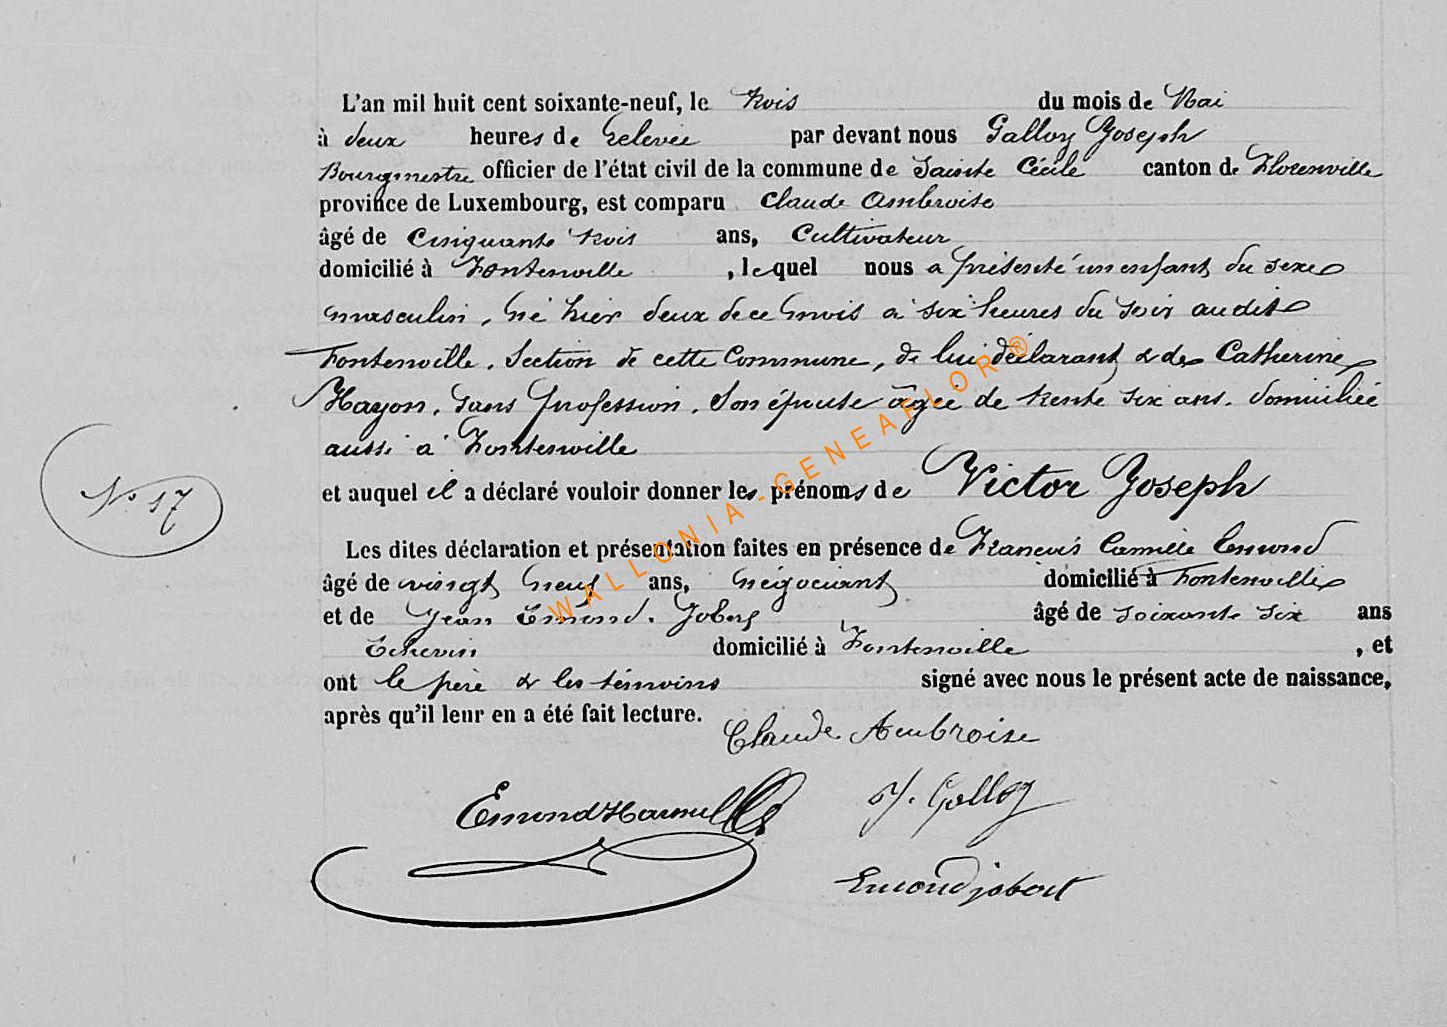 L'an mil huit cent soixante-neuf, le trois du mois de Mai
à deux heures de relevée par devant nous Galloy Joseph
Bourgmestre officier de l'état civil de la commune de Sainte Cécile canton de Florenville
province de Luxembourg, est comparu Claude Ambroise
âgé de Cinquante trois ans, Cultivateur
domicilié à Fontenoille, lequel nous a présenté un enfant du sexe
masculin, né hier deux de ce mois à six heures du soir audit
Fontenoille, Section de cette Commune, de lui déclarant & de Catherine
Hayon, sans profession, son épouse âgée de trente six ans, domiciliée
aussi à Fontenoille
et auquel il a déclaré vouloir donner les prénoms de Victor Joseph
N° 17
Les dites déclaration et présentation faites en présence de François Camille Emond
âgé de vingt neuf ans, négociant domicilié à Fontenoille
et de Jean Emond. Jobert âgé de soixante six ans
Echevin domicilié à Fontenoille, et
ont le père & les témoins signé avec nous le présent acte de naissance,
après qu'il leur en a été fait lecture.
Claude Ambroise
Emond J. Galloy
Emond jobert
WALLONIA-GENEAFLOR®